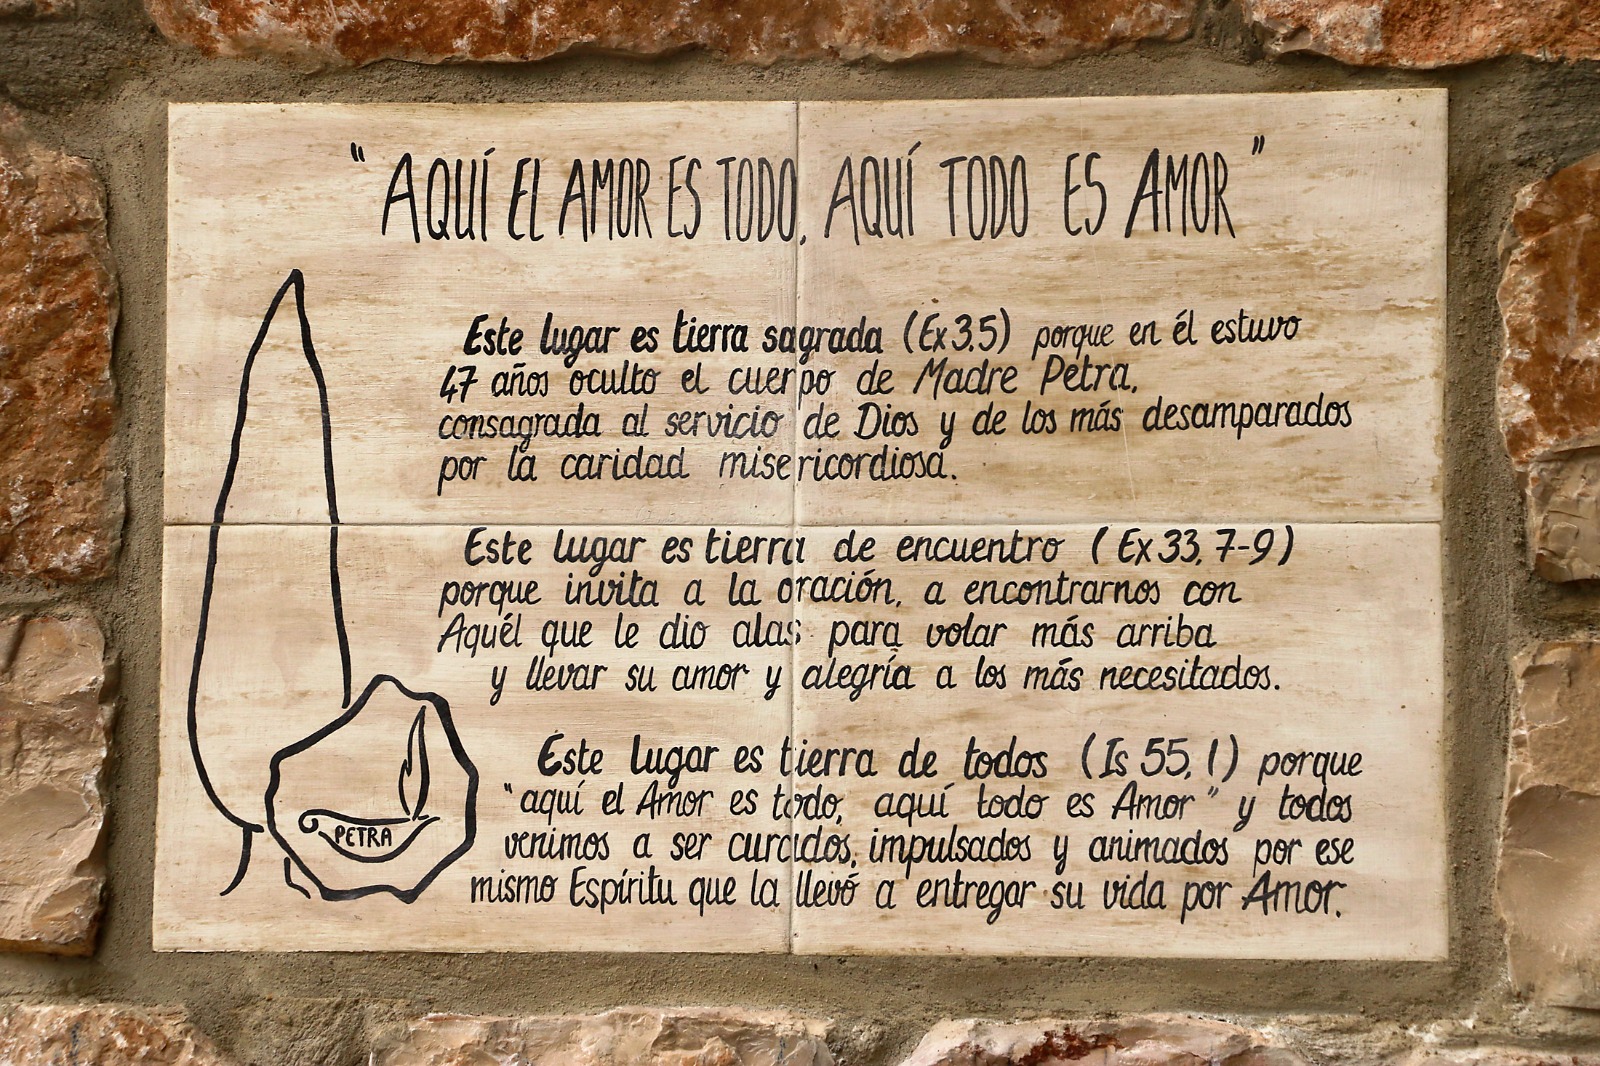 "AQUÍ EL AMOR ES TODO, AQUÍ TODO ES AMOR"
Este lugar es tierra sagrada (Ex 3,5) porque en él estuvo
47 años oculto el cuerpo de Madre Petra,
consagrada al servicio de Dios y de los más desamparados
por la caridad misericordiosa.
Este lugar es tierra de encuentro (Ex 33, 7-9)
porque invita a la oración, a encontrarnos con
Aquél que le dio alas para volar más arriba
y llevar su amor y alegría a los más necesitados.
Este lugar es tierra de todos (Is 55, 1) porque
"aquí el Amor es todo, aquí todo es Amor" y todos
venimos a ser curados, impulsados y animados por ese
mismo Espíritu que la llevó a entregar su vida por Amor.
PETRA